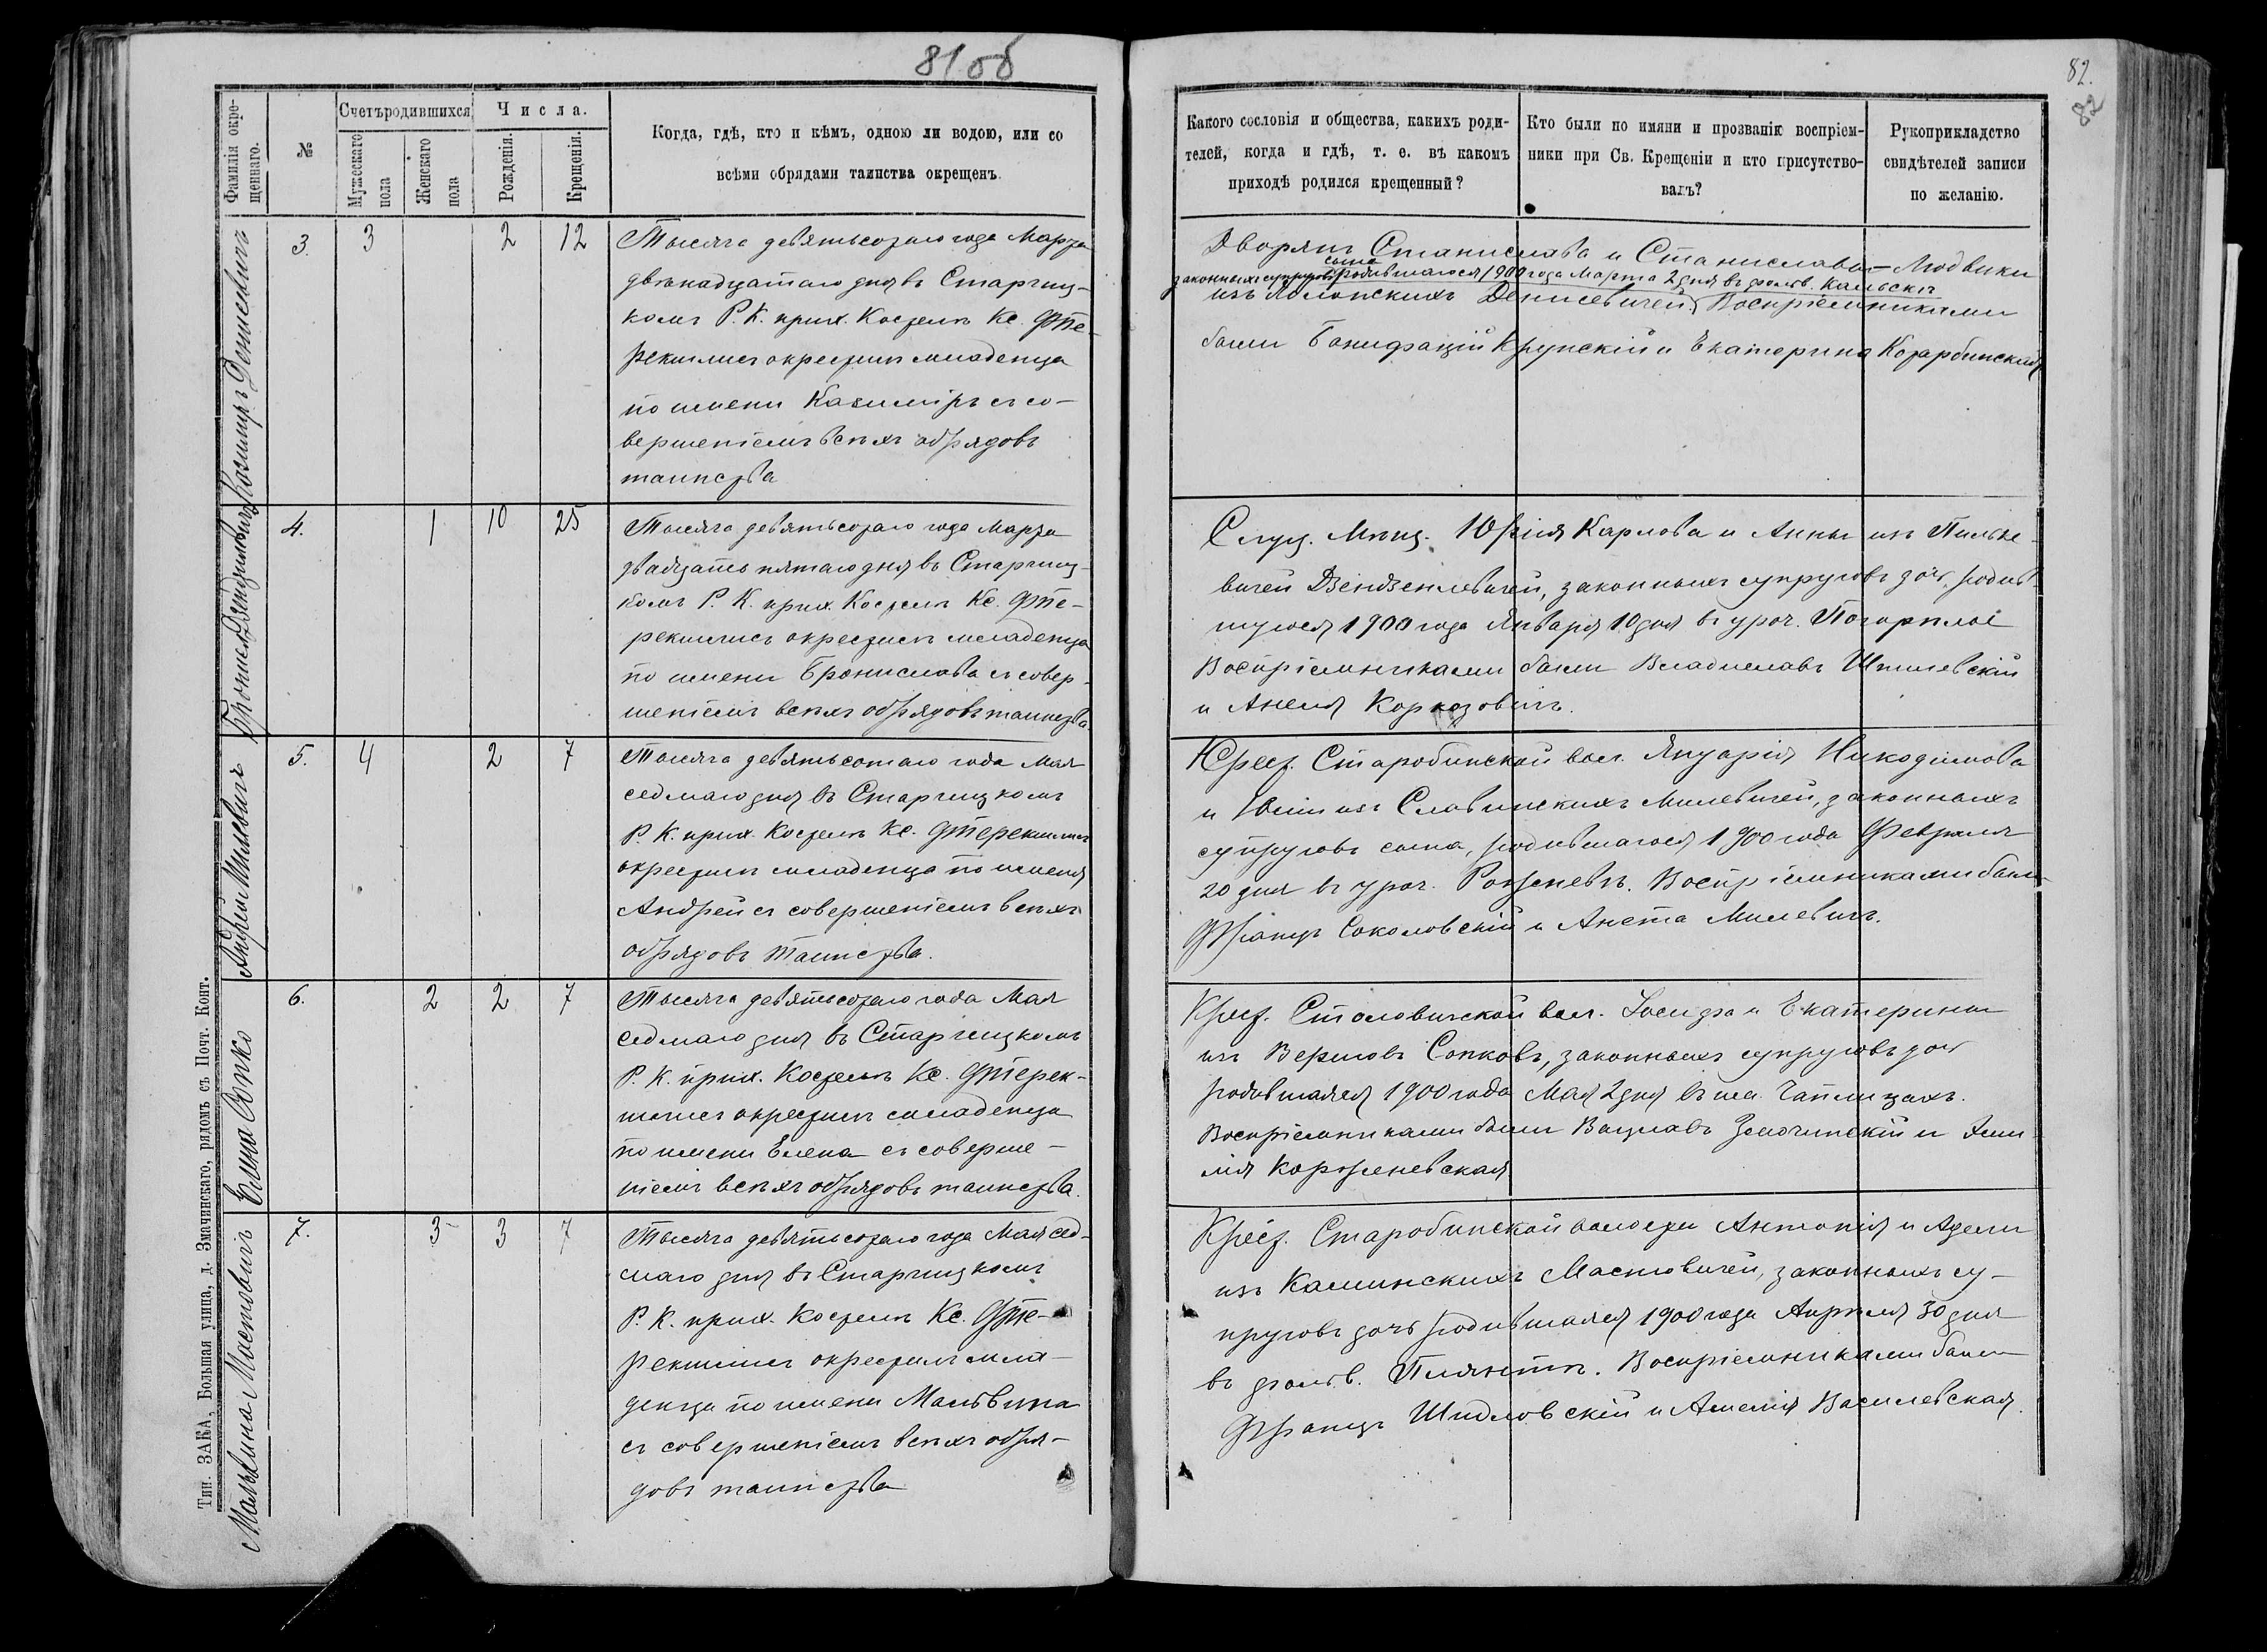 81об
Фамилія окрещеннаго.
№
Счетъ родившихся
Мужескаго пола
Женскаго пола
Числа.
Рожденія.
Крещенія.
Когда, гдѣ, кто и кѣмъ, одною ли водою, или со
всѣми обрядами таинства окрещенъ.
Казимиръ Денисевичъ
3. 3 2 12
Тысяча девятьсотаго года Марта
двѣнадцатаго дня въ Старчиц-
комъ Р. К. прих. Костелѣ Кс.
окрестилъ младенца
по имени Казиміръ съ со-
вершеніемъ всѣхъ обрядовъ
таинства
4. 1 10 25
Тысяча девятьсотаго года Марта
двадцать пятаго дня въ Старчиц-
комъ Р. К. прих. Костелѣ Кс.
окрестилъ младенца
по имени Бронислава съ совер-
шеніемъ всѣхъ обрядовъ таинства.
Андрей Милевичъ
5. 4 2 7
Тысяча девятьсотаго года Мая
седмаго дня въ Старчицкомъ
Р. К. прих. Костелѣ Кс.
окрестилъ младенца по имени
Андрей съ совершеніемъ всѣхъ
обрядовъ таинства.
Елена Сопко
6. 2 2 7
Тысяча девятьсотаго года Мая
седмаго дня въ Старчицкомъ
Р. К. прих. Костелѣ Кс.
окрестилъ младенца
по имени Елена съ соверше-
ніемъ всѣхъ обрядовъ таинства.
Мальвина Мастовичъ
7. 3 3 7
Тысяча девятьсотаго года Мая сед-
маго дня въ Старчицкомъ
Р. К. прих. Костелѣ Кс.
окрестилъ мла-
денца по имени Мальвина
съ совершеніемъ всѣхъ обря-
довъ таинства
Тип. ЗАКА, Большая улица, д. Змачинскаго, рядомъ съ Почт. Конт.
82.
82
Какого сословія и общества, какихъ роди-
телей, когда и гдѣ, т. е. въ какомъ
приходѣ родился крещенный?
Кто были по имяни и прозванію воспріем-
ники при Св. Крещеніи и кто присутство-
валъ?
Рукоприкладство
свидѣтелей записи
по желанію.
Дворянъ Станислава и Станиславы-Людвики
сына
законныхъ супруговъ родившагося 1900 года Марта 2 дня въ фольв.
изъ Денисевичей. Воспріемниками
были Бонифацій Крупскій и Екатерина Котарбинская
Слуц. Мѣщ. Юрія Карлова и Анны изъ Пильке-
вичей Дзендзелевичей, законныхъ супруговъ дочь, родив-
шуюся 1900 года Января 10 дня въ уроч. Погорѣлое
Воспріемниками были Владиславъ Шпилевскій
и Анеля Коркозовичъ.
Крест. Старобинской вол. Януарія Никодимова
и изъ Славинскихъ Милевичей, законныхъ
супруговъ сына, родившагося 1900 года Февраля
20 дня въ уроч. Воспріемниками были
Францъ Соколовскій и Анета Милевичъ.
Крест. Столовичской вол. Іосифа и Екатерины
изъ Сопковъ, законныхъ супруговъ дочь
родившаяся 1900 года Мая 2 дня въ им. Чаплицахъ.
Воспріемниками были Вацлавъ и Эми-
лія Корженевская
Крест. Старобинской волости Антонія и Адели
изъ Каминскихъ Мастовичей, законныхъ су-
пруговъ дочь родившаяся 1900 года Апрѣля 30 дня
въ фольв. Плянтъ. Воспріемниками были
Францъ Шидловскій и Амелія Василевская.